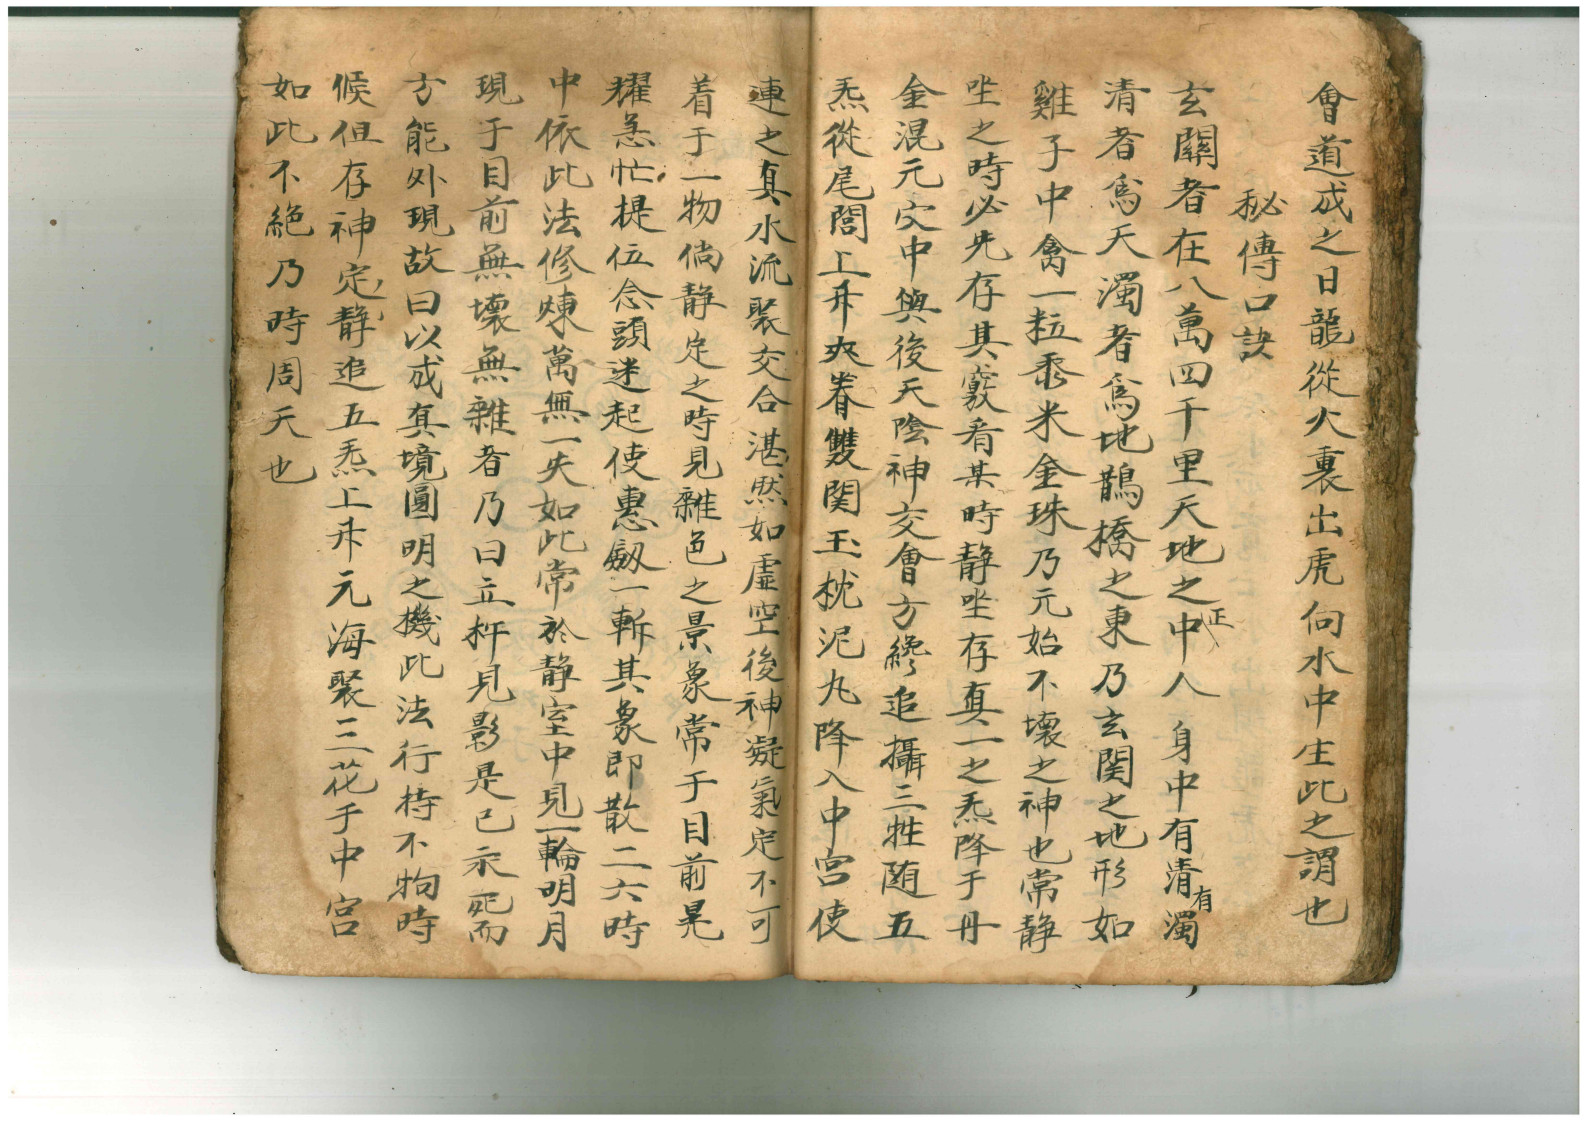 會道成之日龍從火裏出虎向水中生此之謂也
秘傳口訣
玄關者在八萬四千里天地之中正人身中有清有濁
清者為天濁者為地鵲橋之東乃玄関之地形如
雞子中禽一粒黍米金珠乃元始不壞之神也常静
坐之時必先存其竅看某時静坐存真一之炁降于丹
金混元穴中與後天陰神交會方纔追攝三牲随五
炁從尾閭上升夾脊雙関玉枕泥丸降入中宮使
連之真水流聚交合湛然如虛空後神凝氣定不可
着于一物倘静定之時見雜色之景象常于目前晃
耀急忙提位念頭迷起使惠劔一斬其象即散二六時
中依此法修煉萬無一失如此常於静室中見一輪明月
現于目前無壞無雜者乃曰立杆見影是已永死而
方能外現故曰以成真境圓明之機此法行持不拘時
候但存神定静追五炁上升元海聚三花于中宮
如此不絕乃時周天也